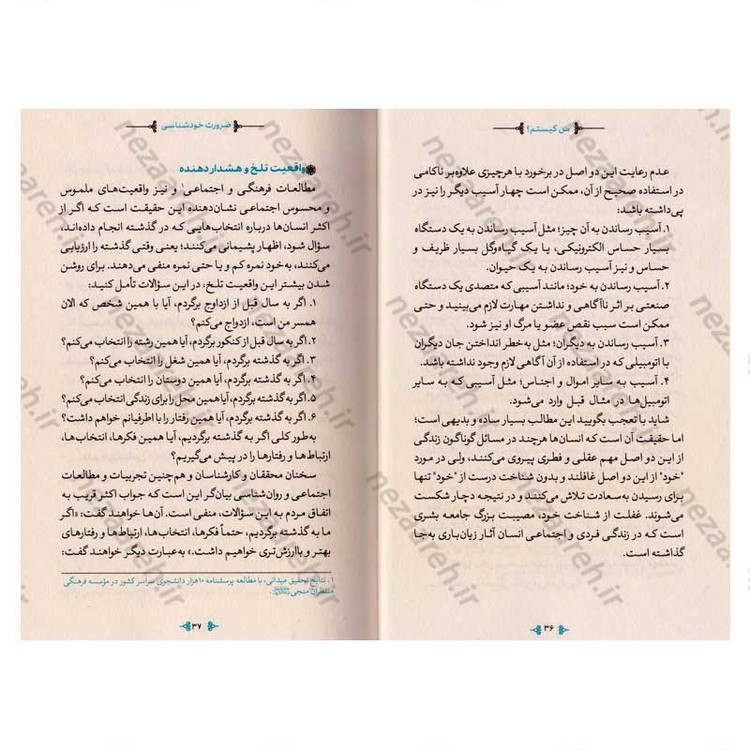 من کیستم؟
عدم رعایت این دو اصل در برخورد با هرچیزی علاوه‌بر ناکامی
در استفاده صحیح از آن، ممکن است چهار آسیب دیگر را نیز در
پی‌داشته باشد:
۱. آسیب رساندن به آن چیز؛ مثل آسیب رساندن به یک دستگاه
بسیار حساس الکترونیکی، یا یک گیاه‌وگل بسیار ظریف و
حساس و نیز آسیب رساندن به یک حیوان.
۲. آسیب رساندن به خود؛ مانند آسیبی که متصدی یک دستگاه
صنعتی بر اثر ناآگاهی و نداشتن مهارت لازم می‌بیند و حتی
ممکن است سبب نقص عضو یا مرگ او نیز شود.
۳. آسیب رساندن به دیگران؛ مثل به‌خطر انداختن جان دیگران
با اتومبیلی که در استفاده از آن آگاهی لازم وجود نداشته باشد.
۴. آسیب به سایر اموال و اجناس؛ مثل آسیبی که به سایر
اتومبیل‌ها در مثال قبل وارد می‌شود.
شاید با تعجب بگویید این مطالب بسیار ساده و بدیهی است؛
اما حقیقت آن است که انسان‌ها هرچند در مسائل گوناگون زندگی
از این دو اصل مهم عقلی و فطری پیروی می‌کنند، ولی در مورد
"خود" از این دو اصل غافلند و بدون شناخت درست از "خود" تنها
برای رسیدن به‌سعادت تلاش می‌کنند و در نتیجه دچار شکست
می‌شوند. غفلت از شناخت خود، مصیبت بزرگ جامعه بشری
است که در زندگی فردی و اجتماعی انسان آثار زیان‌باری به‌جا
گذاشته است.
۳۶
ضرورت خودشناسی
واقعیت تلخ و هشداردهنده
مطالعات فرهنگی و اجتماعی۱ و نیز واقعیت‌های ملموس
و محسوس اجتماعی نشان‌دهنده این حقیقت است که اگر از
اکثر انسان‌ها درباره انتخاب‌هایی که در گذشته انجام داده‌اند،
سؤال شود، اظهار پشیمانی می‌کنند؛ یعنی وقتی گذشته را ارزیابی
می‌کنند، به‌خود نمره کم و یا حتی نمره منفی می‌دهند. برای روشن
شدن بیشتر این واقعیت تلخ، در این سؤالات تأمل کنید:
۱. اگر به سال قبل از ازدواج برگردم، آیا با همین شخص که الان
همسر من است، ازدواج می‌کنم؟
۲. اگر به سال قبل از کنکور برگردم، آیا همین رشته را انتخاب می‌کنم؟
۳. اگر به گذشته برگردم، آیا همین شغل را انتخاب می‌کنم؟
۴. اگر به گذشته برگردم، آیا همین دوستان را انتخاب می‌کنم؟
۵. اگر به گذشته برگردم، آیا همین محل را برای زندگی انتخاب می‌کنم؟
۶. اگر به گذشته برگردم، آیا همین رفتار را با اطرفیانم خواهم داشت؟
به‌طور کلی اگر به گذشته برگردیم، آیا همین فکرها، انتخاب‌ها،
ارتباط‌ها و رفتارها را در پیش می‌گیریم؟
سخنان محققان و کارشناسان و هم‌چنین تجربیات و مطالعات
اجتماعی و روان‌شناسی بیان‌گر این است که جواب اکثر قریب به
اتفاق مردم به این سؤالات، منفی است. آن‌ها خواهند گفت: «اگر
ما به گذشته برگردیم، حتماً فکرها، انتخاب‌ها، ارتباط‌ها و رفتارهای
بهتر و باارزش‌تری خواهیم داشت.» به‌عبارت دیگر خواهند گفت:
۱. نتایج تحقیق میدانی، با مطالعه پرسشنامه ۱۰هزار دانشجوی سراسر کشور در مؤسسه فرهنگی
منتظران منجی
۳۷
nezaareh.ir